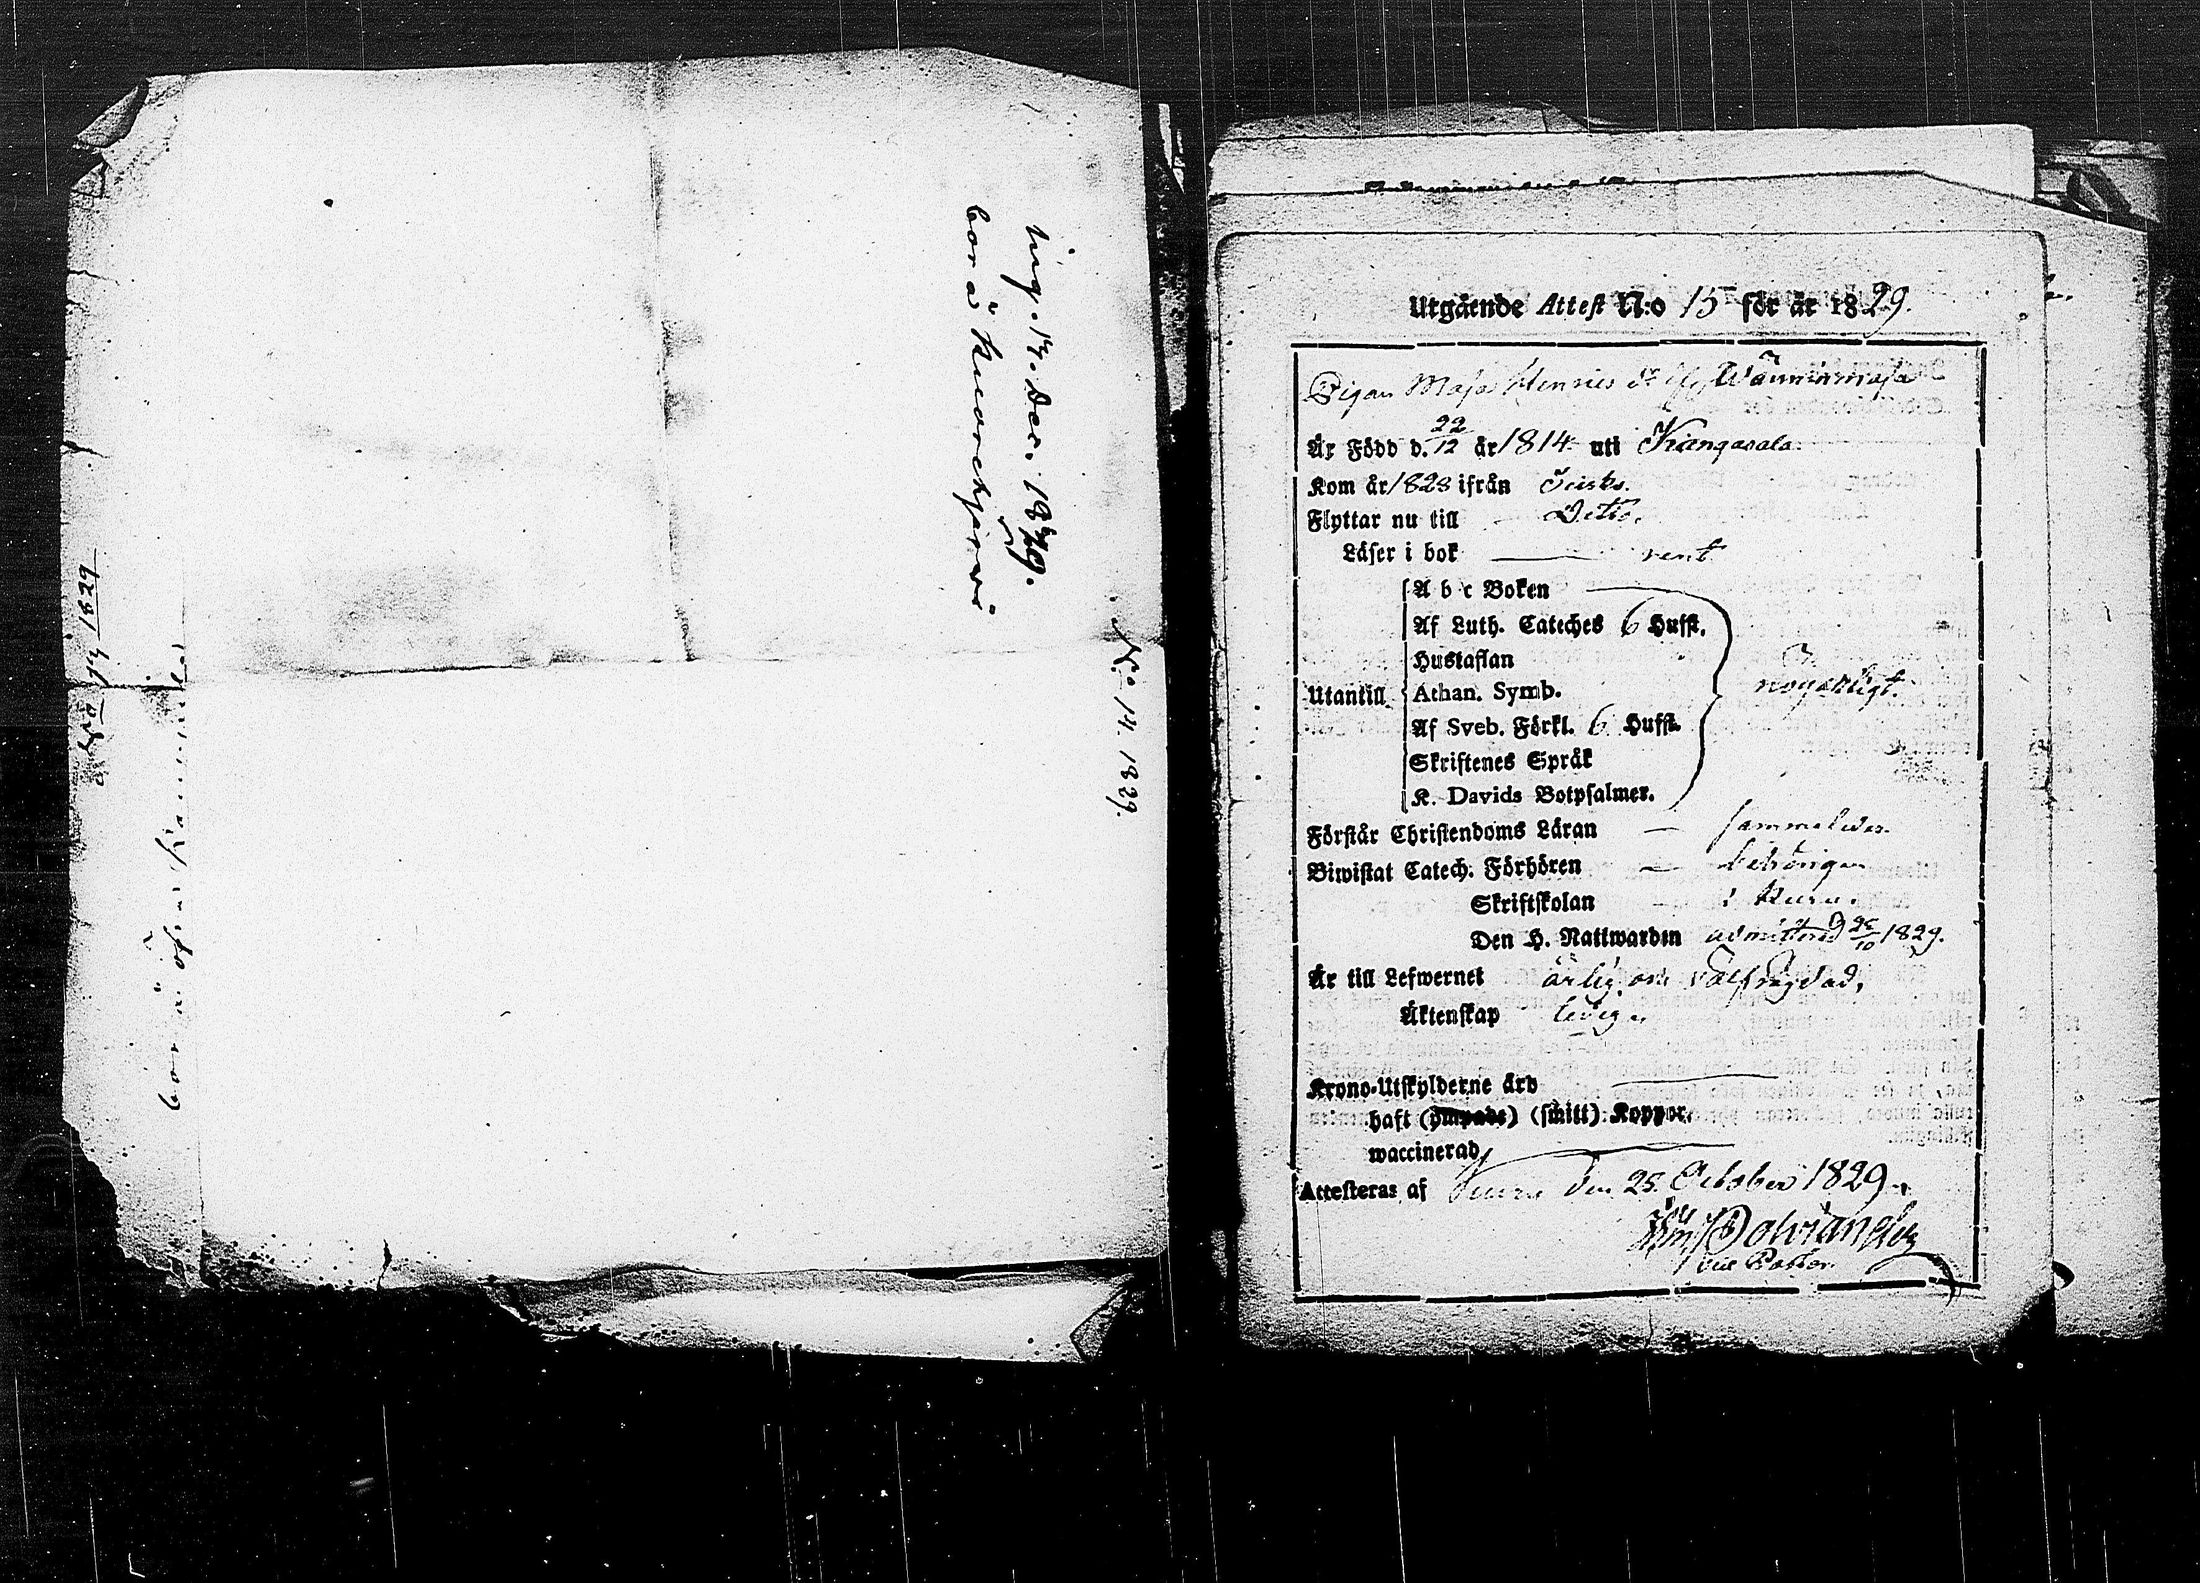 ing. 14. Dec. 1829.
bor å Kuorehjervi
No 14. 1829.
bor å
Utgående Attest N:o 15 för år 1829.
Pigan Maja Henrics dr
Är Född d. 22/12 år 1814 uti Kangasala.
Kom år 1828 ifrån
Flyttar nu till Ditto.
Läser i bok rent
A b c Boken
Af Luth. Cateches 6 Hufst.
Hustaflan
Utantill Athan. Symb. nöyaktigt.
Af Sveb. Förkl. 6 Hufst.
Skriftenes Språk
K. Davids Botpsalmer.
Förstår Christendoms Läran sammaledes.
Biwistat Catech. Förhören behörigen
Skriftskolan i
Den H. Nattwarden admitterad 25/10 1829.
Är till Lefwernet ärlig och välfrägdad,
Äktenskap ledig.
Krono-Utskylderne ärd
haft (ympade) (sjitt) Koppor.
waccinerad
Attesteras af den 25. October 1829.
Vice Pastor.